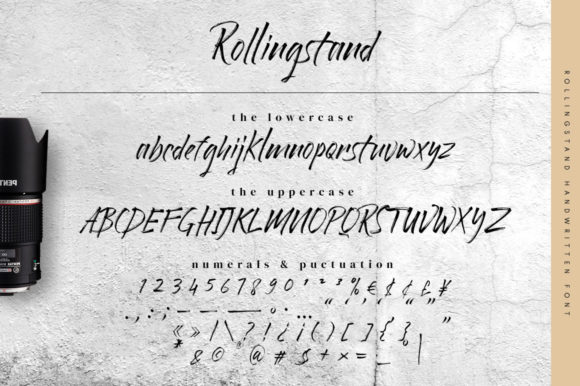 Rollingstand
the lowercase
abcdefghijklmnopqrstuvwxyz
the uppercase
ABCDEFGHIJKLMNOPQRSTUVWXYZ
numerals & puctuation
1 2 3 4 5 6 7 8 9 0 ¹ ² ³ % € $ ¢ £ ¥
. , : ; – — — · . … ‘ ’ “ ”
« » / | \ ? ! ¿ ¡ ( ) [ ] { }
* & © @ # $ + × = _ |
ROLLINGSTAND HANDWRITTEN FONT
PENT